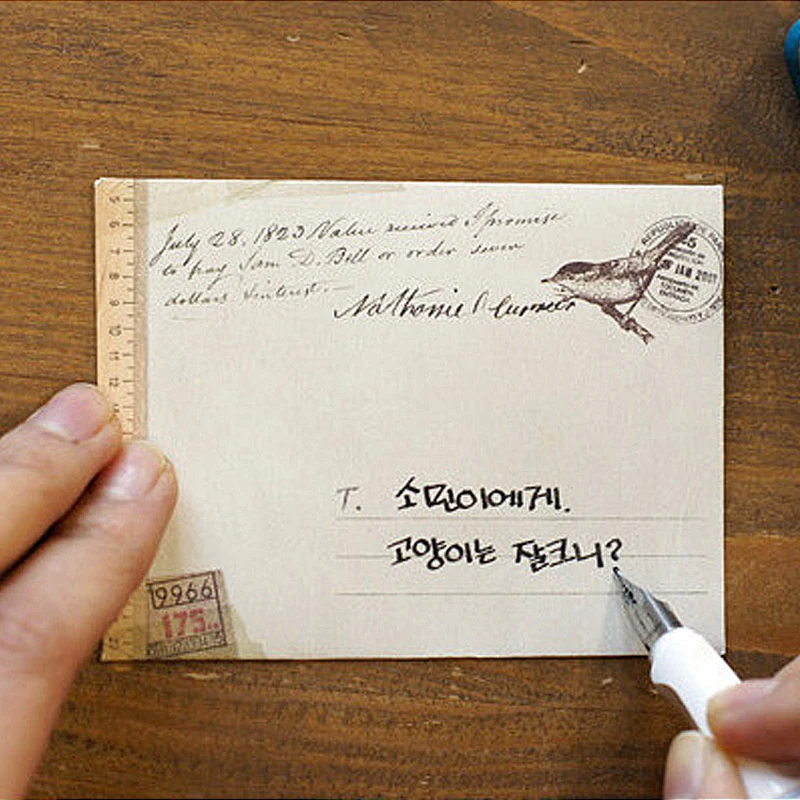 July 28, 1823 Value received I promise
to pay Sam D. Bell or order seven
dollars & interest.
Nathaniel Currier
5
6
7
8
9
10
11
12
JAN 2007
T. 소민이에게.
고양이는 잘크니?
9966
175